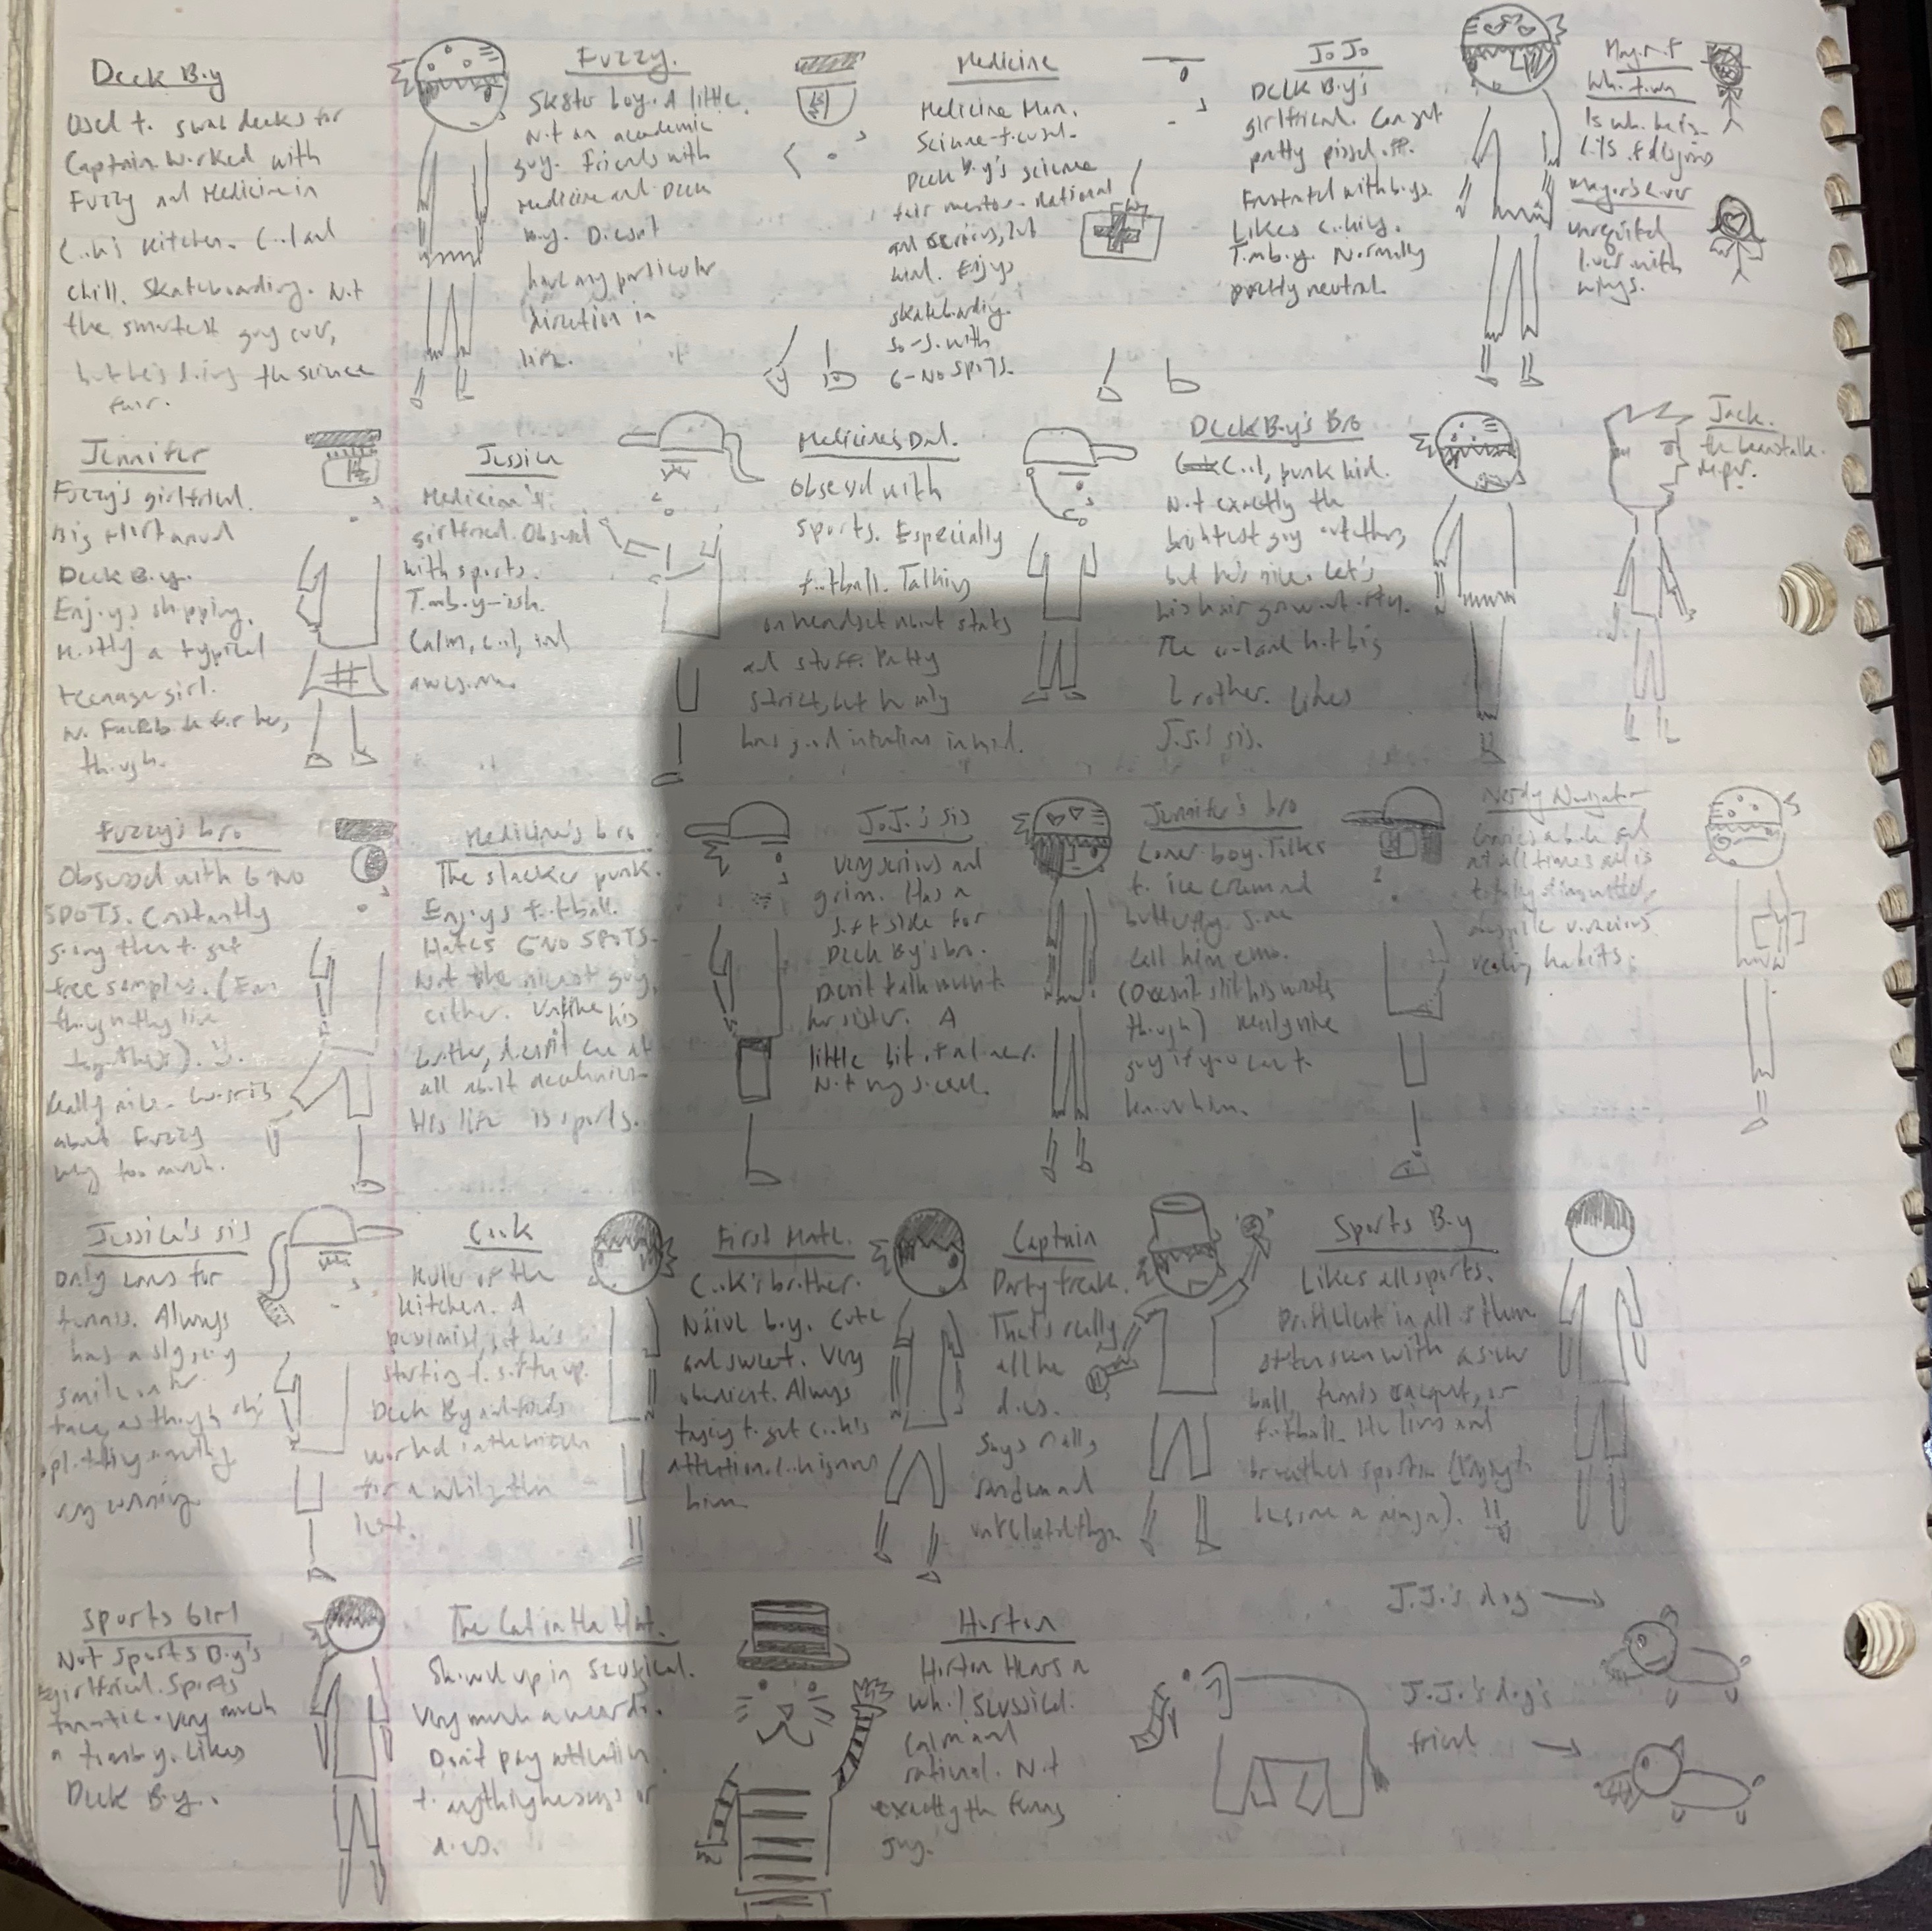 Deck Boy
Used to swab decks for
Captain. Worked with
Fuzzy and Medicine in
Cook's kitchen. Cool and
chill. Skateboarding. Not
the smartest guy ever,
but he's doing the science
fair.
Fuzzy.
Sk8ter boy. A little.
Not an academic
guy. Friends with
Medicine and Deck
Boy. Doesn't
have any particular
direction in
life.
Medicine
Medicine Man.
Science-focused.
Deck Boy's science
fair mentor. Rational
and serious, but
kind. Enjoys
skateboarding.
So-so with
G-NO SPOTS.
JoJo
Deck Boy's
girlfriend. Can get
pretty pissed off.
Frustrated with boys.
Likes cooking.
Tomboy. Normally
pretty neutral.
Mayor of
Whotown
Is who he is.
Mayor's lover
unrequited
lover with
wings.
Jennifer
Fuzzy's girlfriend.
Big flirt around
Deck Boy.
Enjoys shopping.
Mostly a typical
teenage girl.
No Facebook for her,
though.
Jessica
Medicine's
girlfriend. Obsessed
with sports.
Tomboy-ish.
Calm, cool, and
awesome.
Medicine's Dad.
Obsessed with
sports. Especially
football. Talking
on headset about stats
and stuff. Pretty
strict, but he only
has good intentions in mind.
Deck Boy's Bro
Cool, punk kid.
Not exactly the
brightest guy out there,
but he's nice. Let's
his hair grow out
The cool and hot big
brother. Likes
JoJo's sis.
Jack.
the beanstalk.
Fuzzy's bro
Obsessed with G-NO
SPOTS. Constantly
going there to get
free samples. (Even
though they live
together).
Really nice. Worries
about Fuzzy
way too much.
Medicine's bro
The slacker punk.
Enjoys football.
Hates G-NO SPOTS.
Not the nicest guy,
either. Unlike his
brother, doesn't care at
all about academics-
His life is sports.
JoJo's sis
Very serious and
grim. Has a
soft side for
Deck Boy's bro.
Doesn't talk much to
her sister. A
little bit of a loner.
Not very social.
Jennifer's bro
Loner boy. Talks
to ice cream and
butterfly. Some
call him emo.
(Doesn't slit his wrists
though) Really nice
guy if you get to
know him.
Nerdy Navigator
Carries a book
at all times and is
totally
despite voracious
reading habits.
Jessica's sis
Only cares for
tennis. Always
has a sly
smile on her
face, as though she's
plotting something
very cunning.
Cook
Ruler of the
kitchen. A
pessimist, but he's
starting to soften up.
Deck Boy and
worked in the kitchen
for a while, then
left.
First Mate.
Cook's brother.
Naïve boy. Cute
and sweet. Very
obedient. Always
trying to get Cook's
attention. Cook ignores
him.
Captain
Party freak.
That's really
all he
does.
Says really
random and
unrelated things.
Sports Boy
Likes all sports.
Proficient in all of them.
Often seen with a soccer
ball, tennis racquet, or
football. He lives and
breathes sports. (Trying to
become a ninja).
Sports Girl
Not Sports Boy's
girlfriend. Sports
fanatic. Very much
a tomboy. Likes
Deck Boy.
The Cat in the Hat.
Showed up in Seussical.
Very much a weirdo.
Don't pay attention
to anything he says or
does.
Horton
Horton Hears a
Who! Seussical.
Calm and
rational. Not
exactly the funny
guy.
JoJo's dog
JoJo's dog's
friend